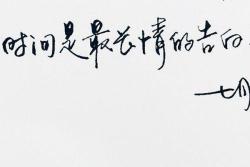 时间是最长情的告白
七月